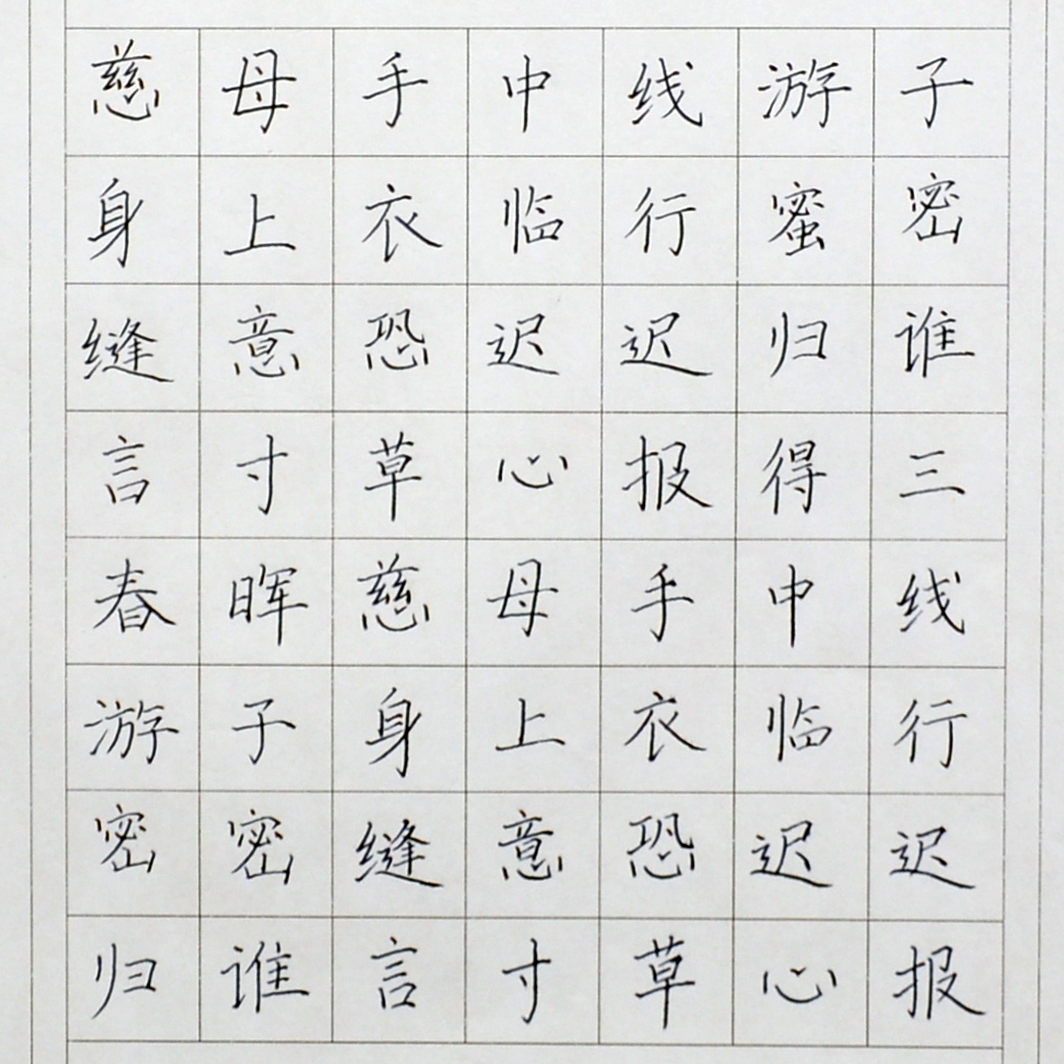 慈母手中线游子
身上衣临行蜜密
缝意恐迟迟归谁
言寸草心报得三
春晖慈母手中线
游子身上衣临行
密密缝意恐迟迟
归谁言寸草心报